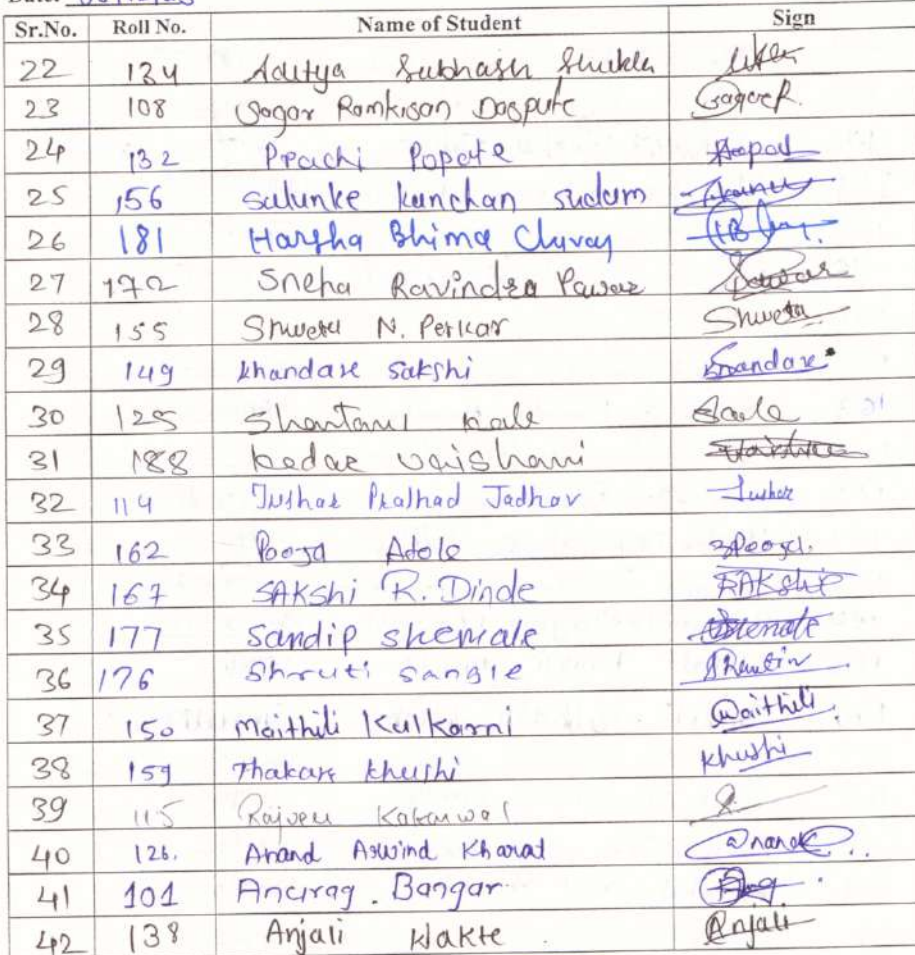 Sr.No. Roll No. Name of Student Sign
22 134 Aditya Subhash Shukla
23 108 Sagar Ramkisan Daspute SagarR.
24 132 Prachi Popate Popat
25 156 Salunke kanchan sudam
26 181 Harsha Bhima Chavay
27 172 Sneha Ravindra Pawar Pawar
28 155 Shweta N. Perkar Shweta
29 149 Khandare Sakshi Khandare
30 125 Shantanu Kale Kale
31 188 Kedar vaishanvi
32 114 Tushar Pralhad Jadhav Tushar
33 162 Pooja Adole Pooja.
34 167 SAKshi R. Dinde SAKshi
35 177 Sandip shemale
36 176 Shruti Sangle
37 150 Maithili Kulkarni Maithili
38 159 Thakare Khushi Khushi
39 115 Rajveer Kakarwal
40 126. Anand Arwind Kharat Anand
41 101 Anurag. Bangar
42 138 Anjali Wakte Anjali